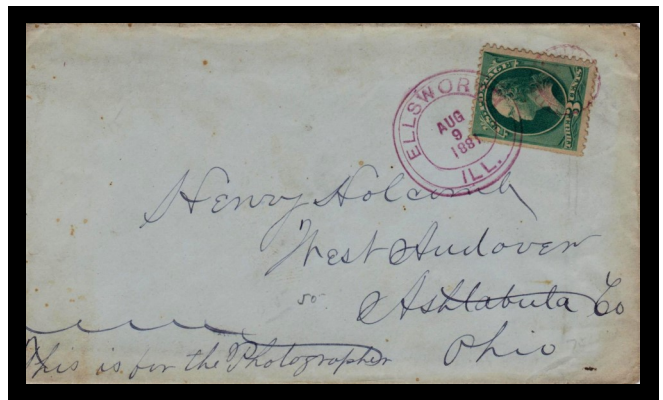 ELLSWOR
AUG
9
1881
ILL.
POSTAGE
THREE 3 CENTS
Henry Holcomb
West Andover
Ashtabula Co
Ohio
This is for the Photographer